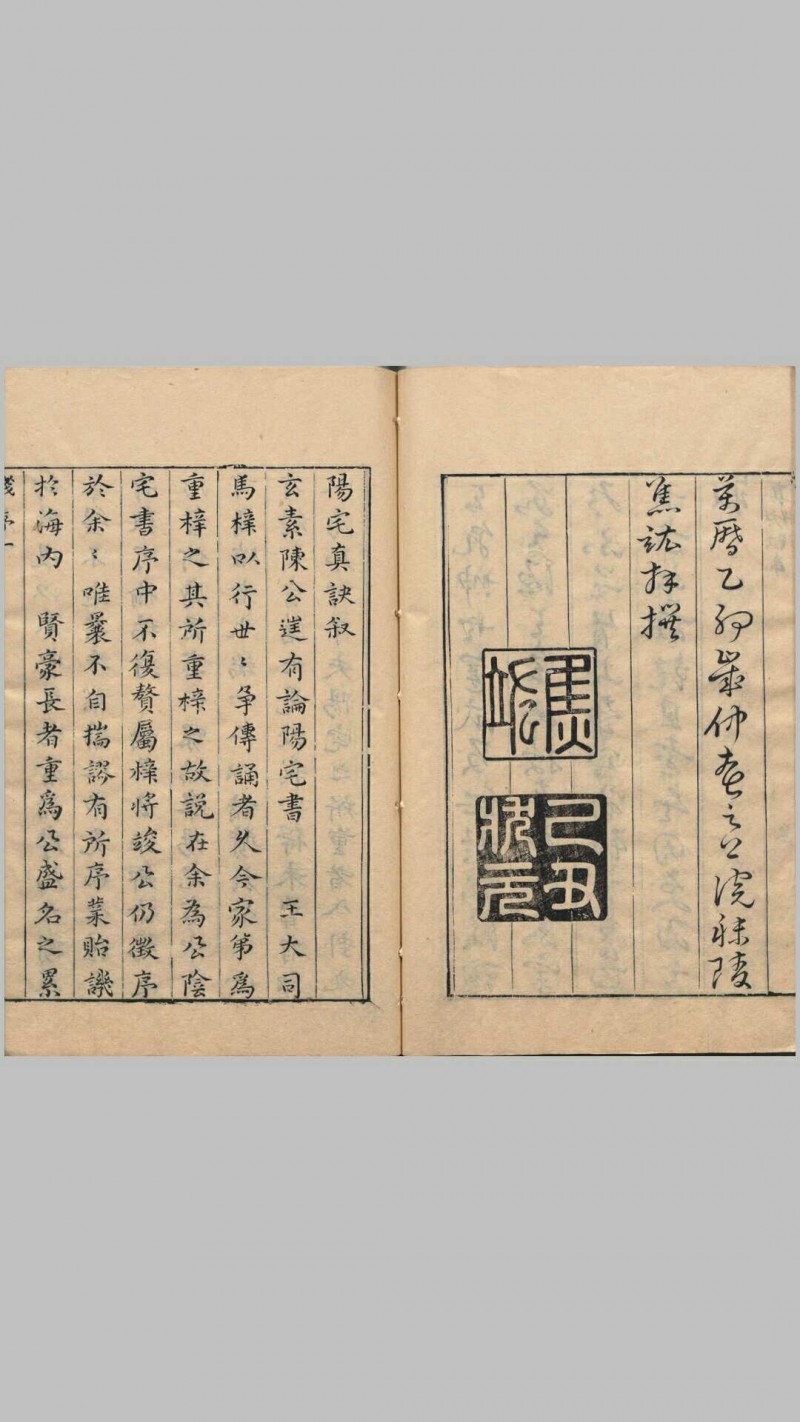 萬曆乙卯歲仲春之上浣秣陵
焦竑拜撰
焦竑
己丑狀元
陽宅真訣敘
玄素陳公遑有論陽宅書 王大司
馬梓以行世〻爭傳誦者久今家第爲
重梓之其所重梓之故説在余為公陰
宅書序中不復贅屬梓將竣公仍徵序
於余〻唯曩不自揣謬有所序業貽譏
於海內 賢豪長者重爲公盛名之累